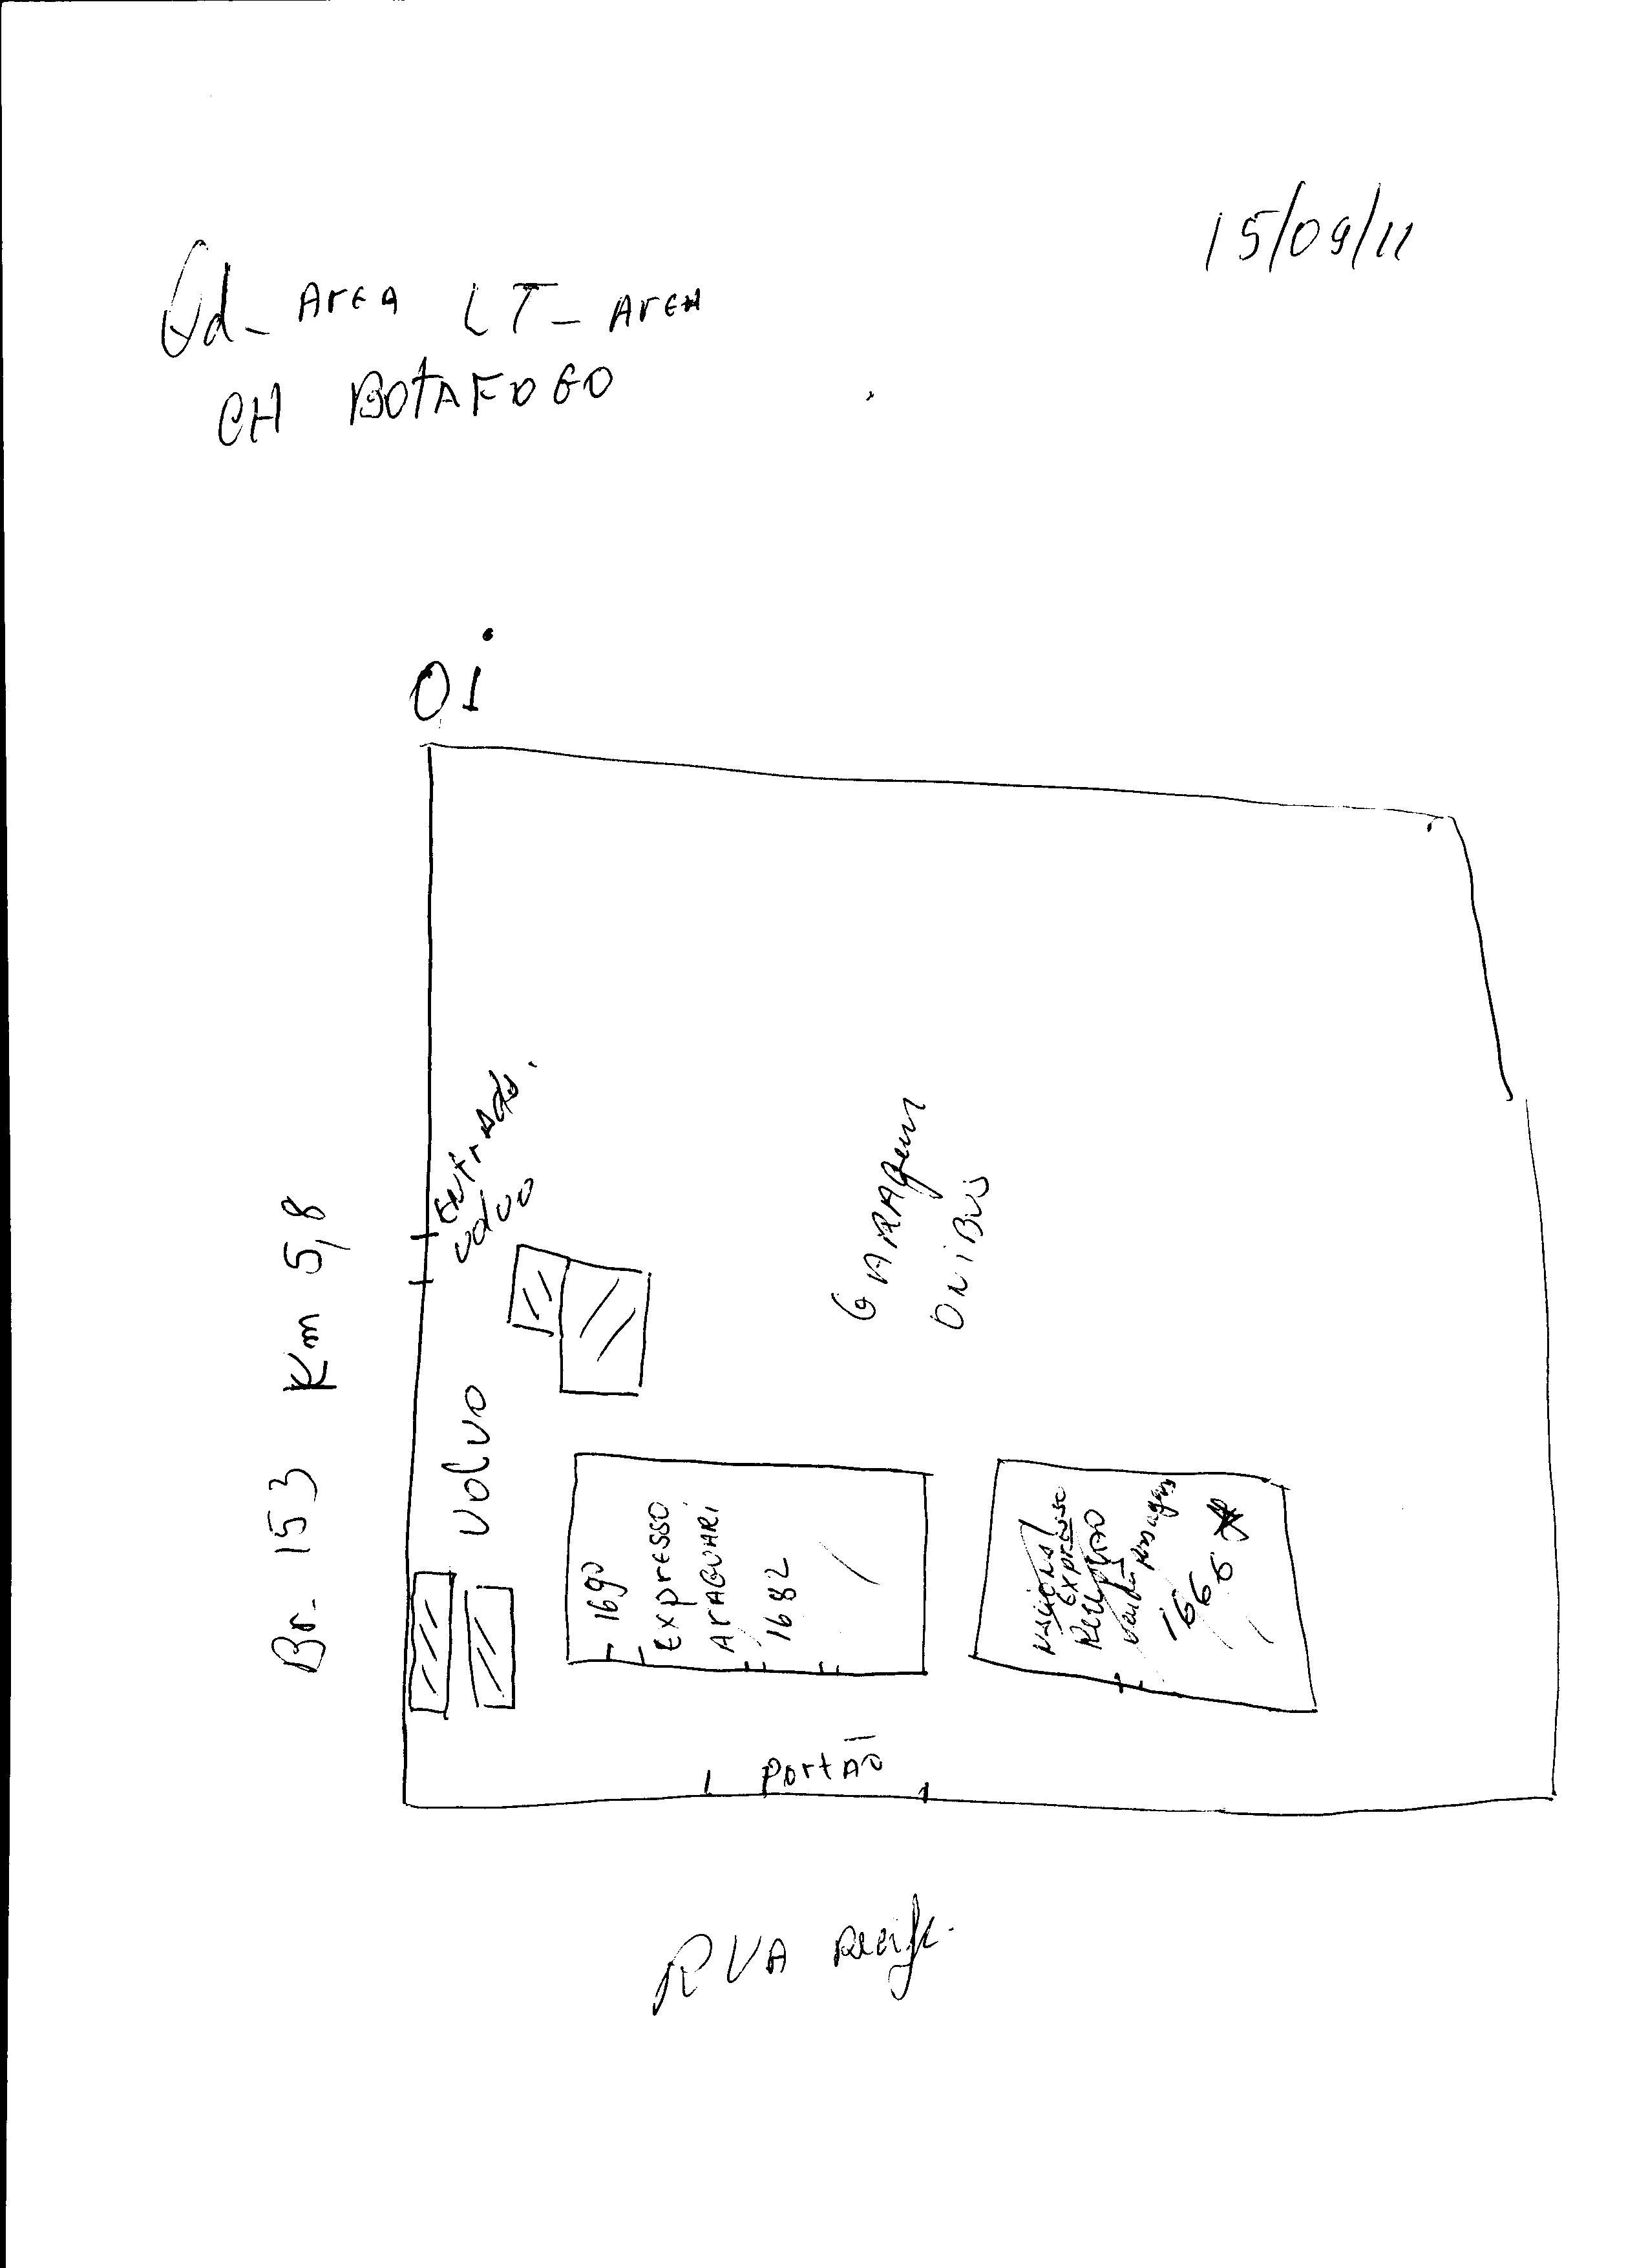 15/09/11
Qd_ ArEA LT_ ArEA
CH BOtAFOGO
Oi
Br. 153 Km 5,8
Entrada
volvo
Volvo
GARAgem
ONiBUS
1690
ExprESSO
ArAGUARi
1682
NAcional
Expresso
venda passagens
1666
portÃo
RUA Recife